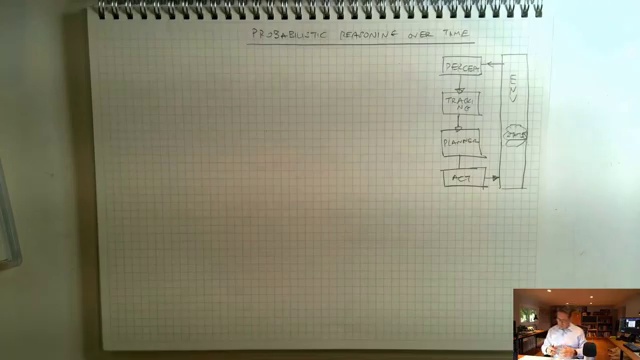 PROBABILISTIC REASONING OVER TIME
PERCEPT
ENV
TRACKI
NG
STATE
PLANNER
ACT